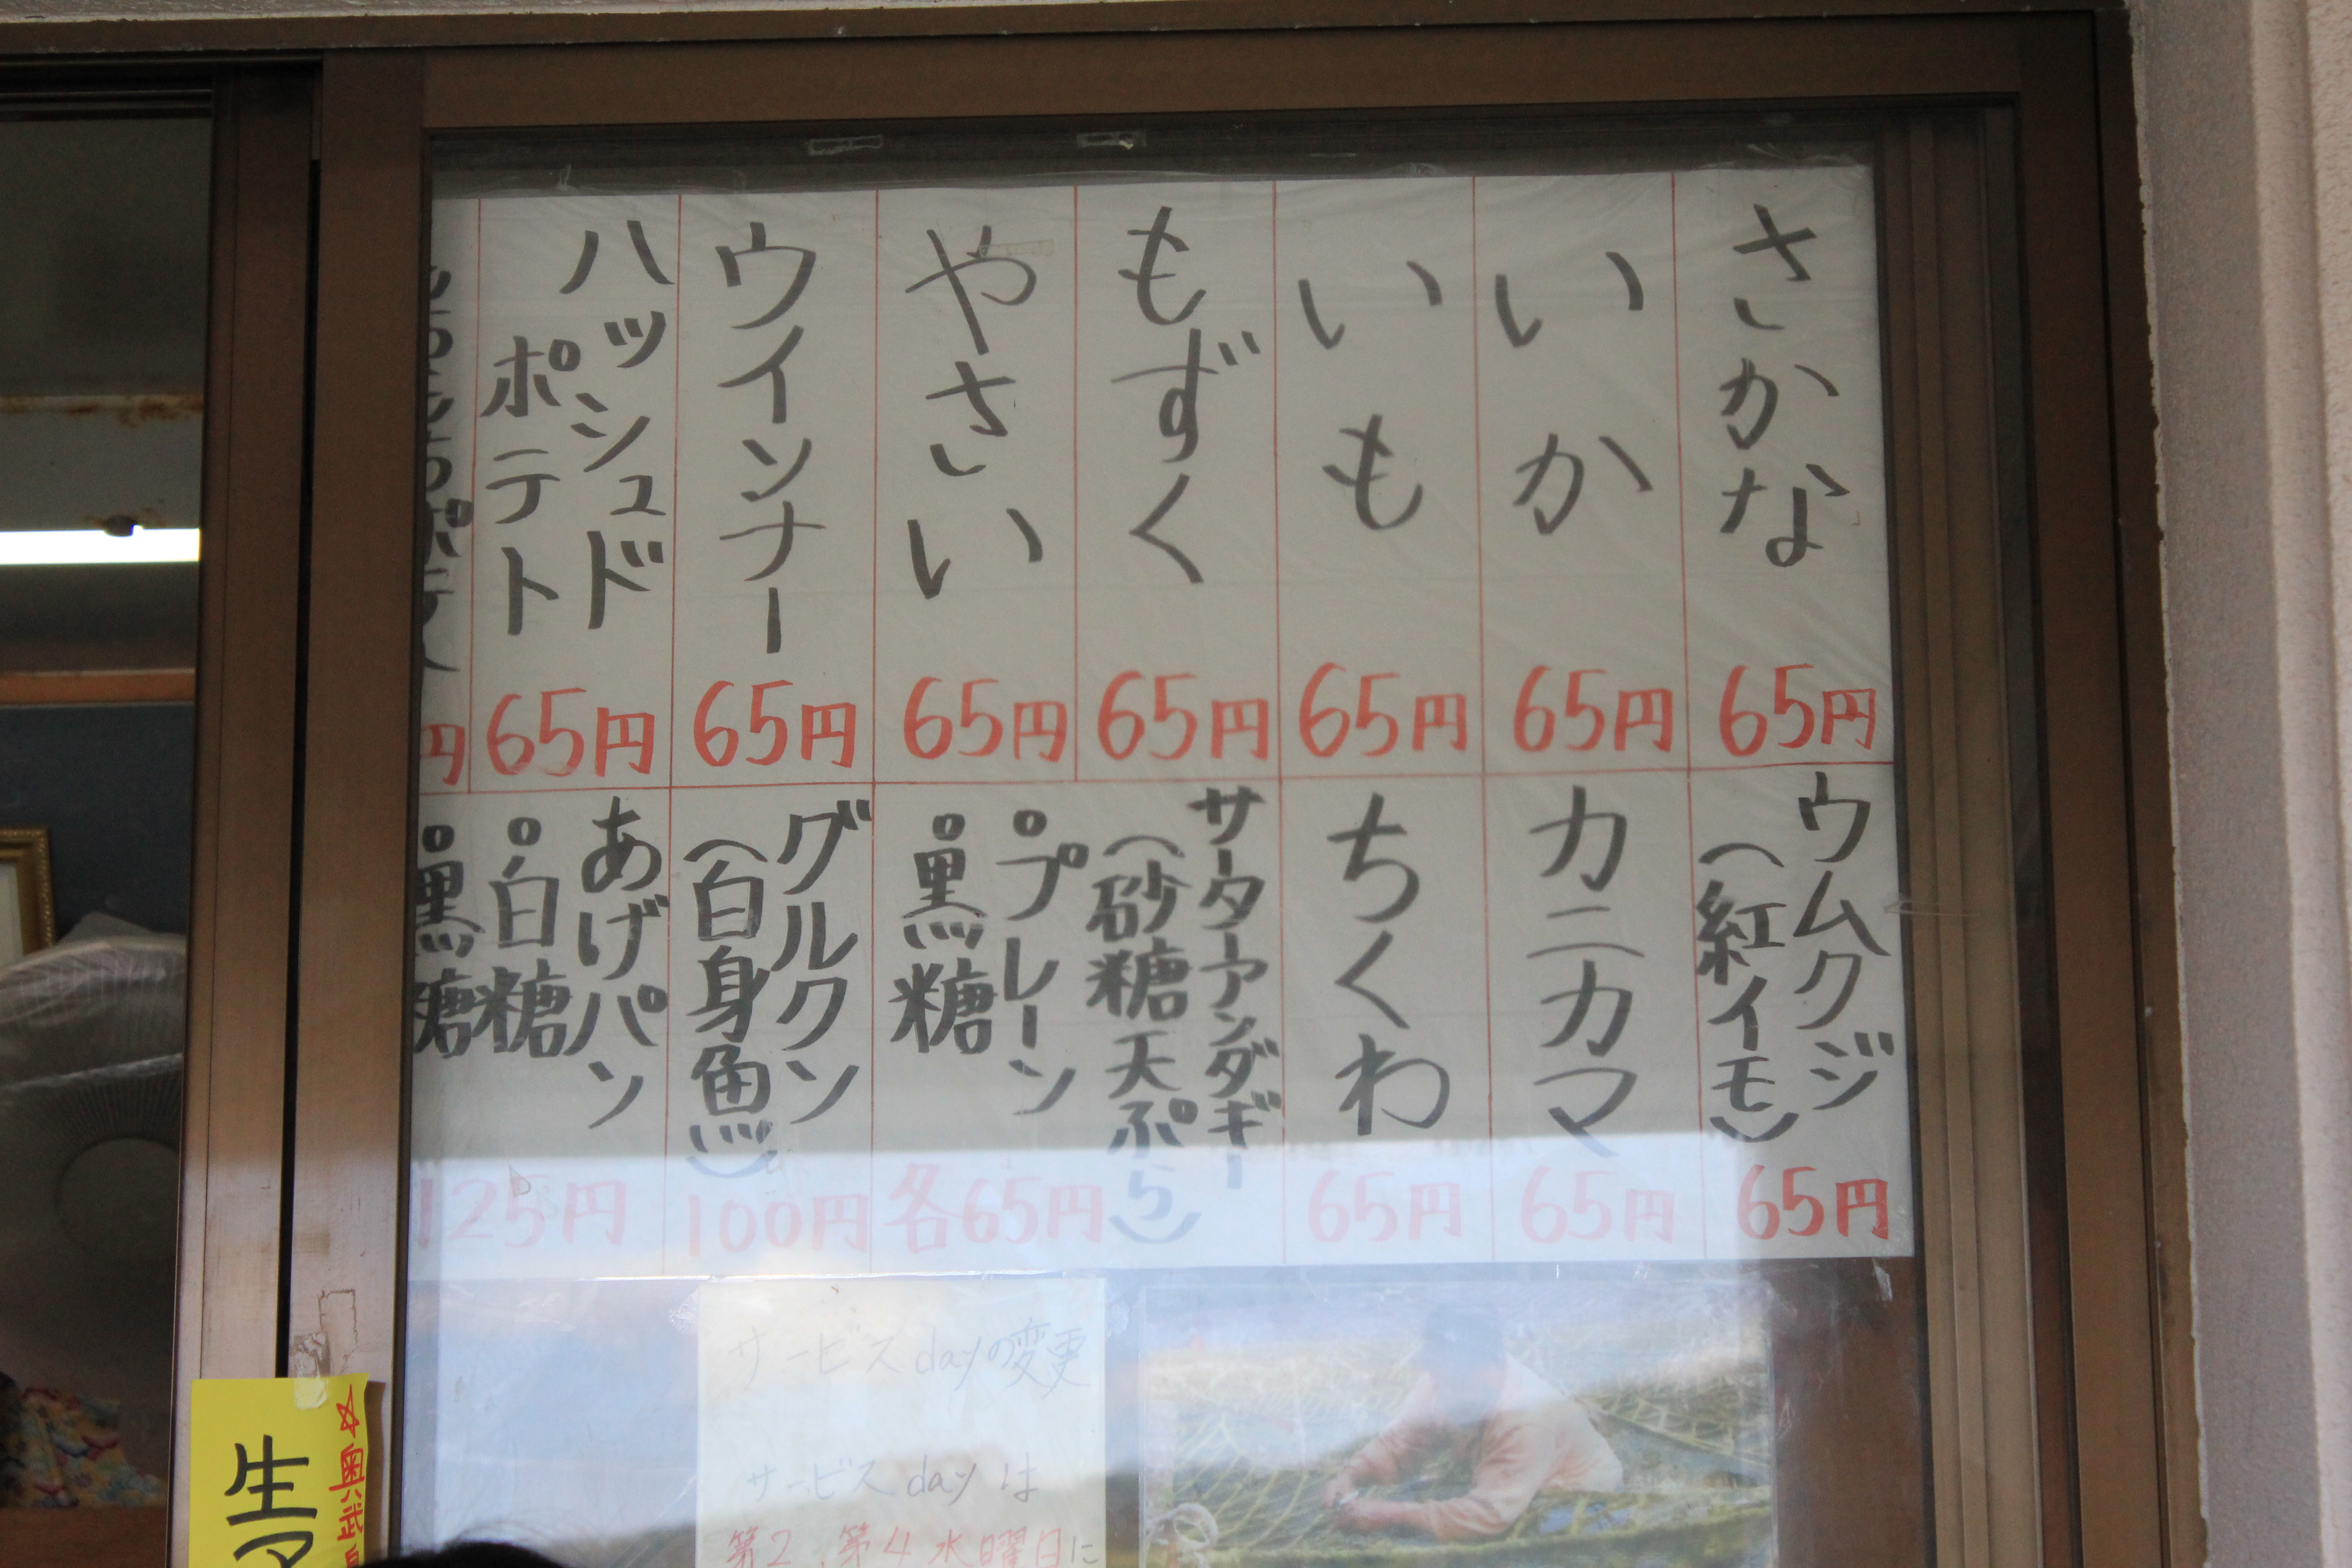 さかな
65円
いか
65円
いも
65円
もずく
65円
やさい
65円
ウインナー
65円
ハッシュド
ポテト
65円
円
ウムクジ
(紅イモ)
65円
カニカマ
65円
ちくわ
65円
サーターアンダギー
(砂糖天ぷら)
°プレーン
°黒糖
各65円
グルクン
(白身魚)
100円
あげパン
°白糖
°黒糖
125円
サービスdayの変更
サービスdayは
第2、第4水曜日に
☆奥武
生マ